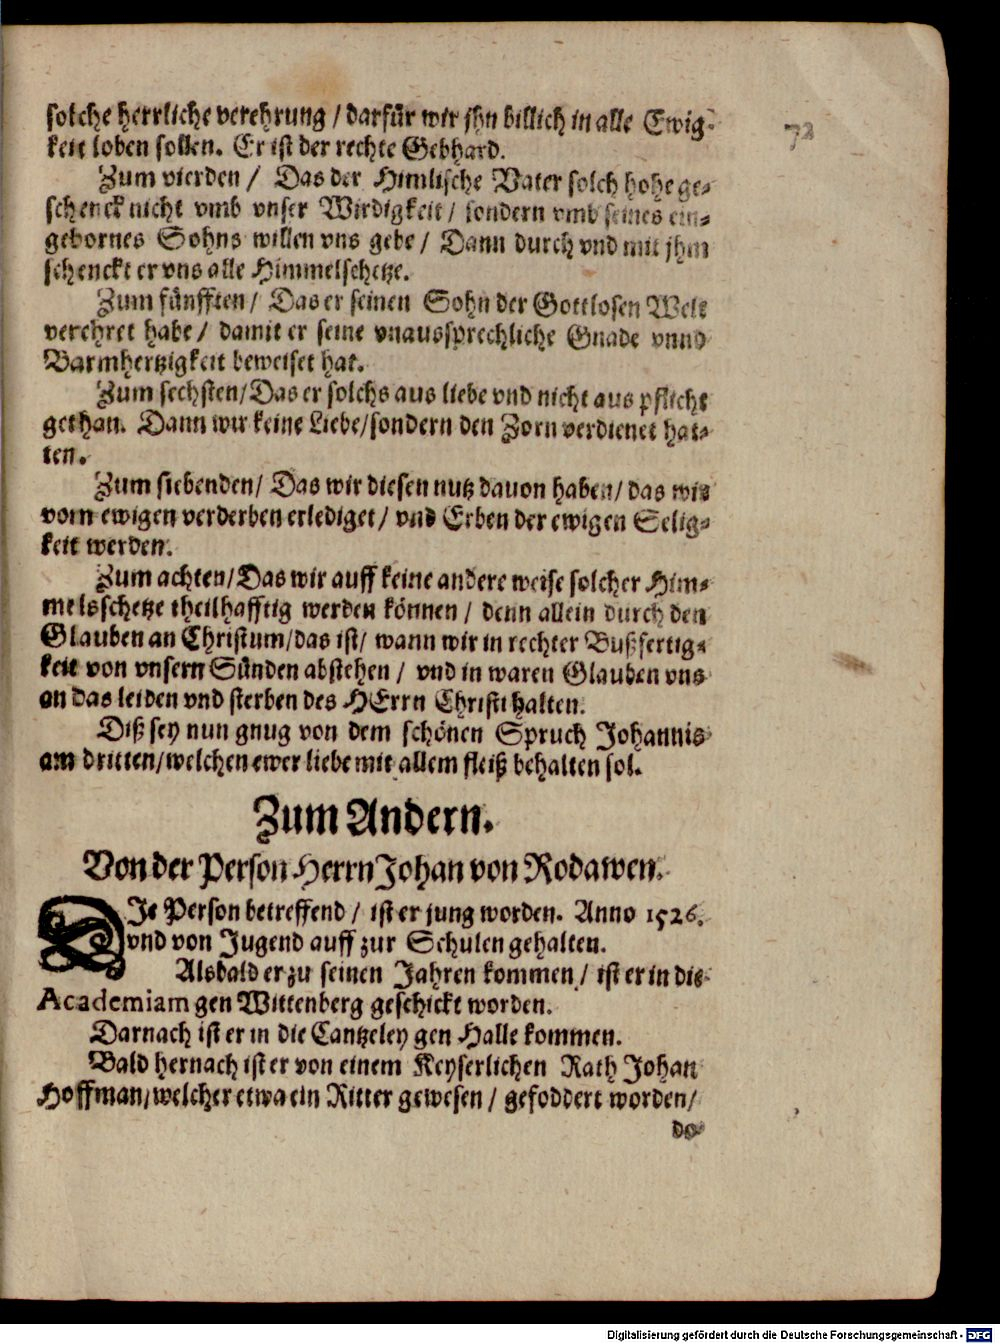 solche herrliche verehrung / darfür wir jhn billich in alle Ewig-
72
keit loben sollen. Er ist der rechte Gebhard.
Zum vierden / Das der Himlische Vater solch hohe ge-
schenck nicht vmb vnser Wirdigkeit / sondern vmb seines ein-
gebornes Sohns willen vns gebe / Dann durch vnd mit jhm
schenckt er vns alle Himmelschetze.
Zum fünfften / Das er seinen Sohn der Gottlosen Welt
verehret habe / damit er seine vnaussprechliche Gnade vnnd
Barmhertzigkeit beweiset hat.
Zum sechsten / Das er solchs aus liebe vnd nicht aus pflicht
gethan. Dann wir keine Liebe / sondern den Zorn verdienet hat-
ten.
Zum siebenden / Das wir diesen nutz dauon haben / das wir
vom ewigen verderben erlediget / vnd Erben der ewigen Selig-
keit werden.
Zum achten / Das wir auff keine andere weise solcher Him-
melsschetze theilhafftig werden können / denn allein durch den
Glauben an Christum / das ist / wann wir in rechter Bußfertig-
keit von vnsern Sünden abstehen / vnd in waren Glauben vns
an das leiden vnd sterben des HErrn Christi halten.
Diß sey nun gnug von dem schönen Spruch Johannis
am dritten / welchen ewer liebe mit allem fleiß behalten sol.
Zum Andern.
Von der Person Herrn Johan von Rodawen.
DIe Person betreffend / ist er jung worden. Anno 1526.
vnd von Jugend auff zur Schulen gehalten.
Alsbald er zu seinen Jahren kommen / ist er in die
Academiam gen Wittenberg geschickt worden.
Darnach ist er in die Cantzeley gen Halle kommen.
Bald hernach ist er von einem Keyserlichen Rath Johan
Hoffman / welcher etwa ein Ritter gewesen / gefoddert worden /
do
Digitalisierung gefördert durch die Deutsche Forschungsgemeinschaft - DFG